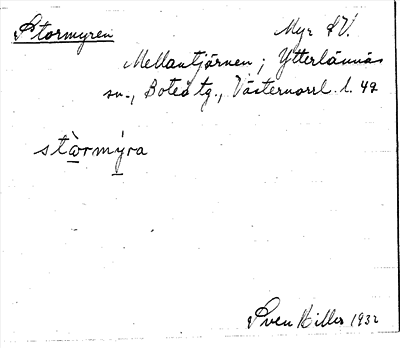 Stormyren Myr SV.
Mellantjärnen; Ytterlännäs
sn., Boteå tg., Västernorrl. l. 49
stòrmýra
Sven Hiller 1932